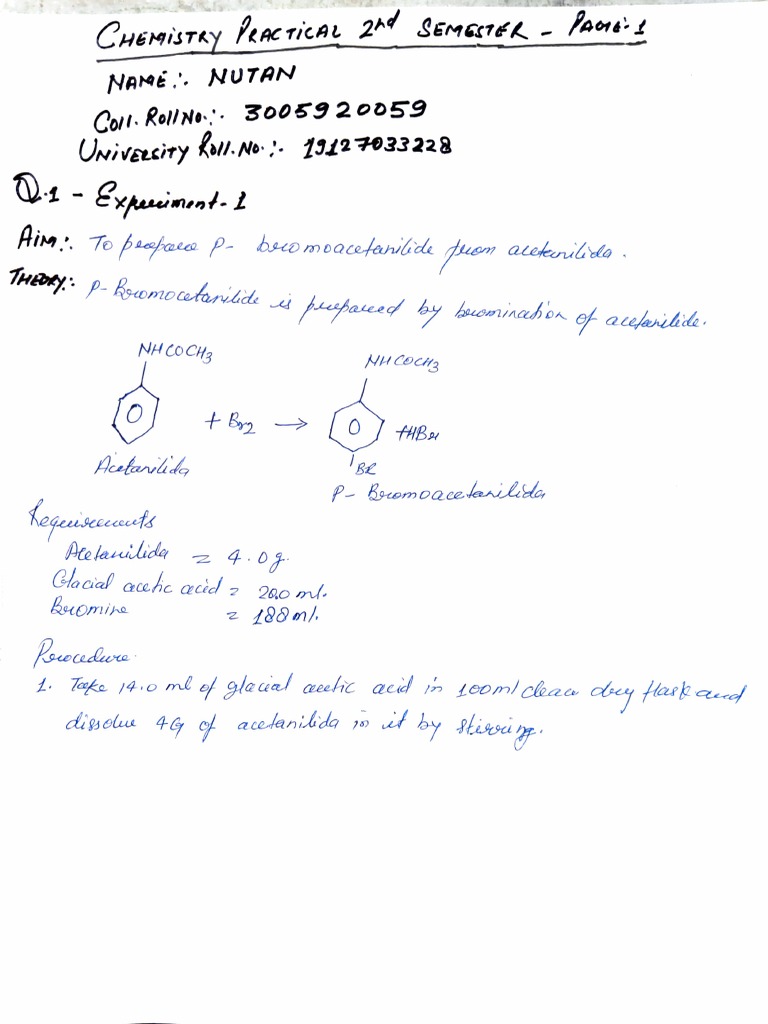 CHEMISTRY PRACTICAL 2nd SEMESTER - PAGE:1
NAME:. NUTAN
Coll. Roll No.:. 3005920059
UNIVERSITY Roll. No.:. 19127033228
Q.1 - Experiment-1
AIM:. To prepare P- bromoacetanilide from acetanilida.
THEORY:. P-Bromocetanilide is prepared by bromination of acetanilide.
NHCOCH3 NHCOCH3
+ Br2 → +HBr
Acetanilida BR
P- Bromoacetanilida
Requirements
Acetanilida = 4.0g.
Glacial acetic acid = 20.0 ml.
Bromine = 188ml.
Procedure
1. Take 14.0 ml of glacial acetic acid in 100ml clean dry flask and
dissolve 4G of acetanilida in it by stirring.